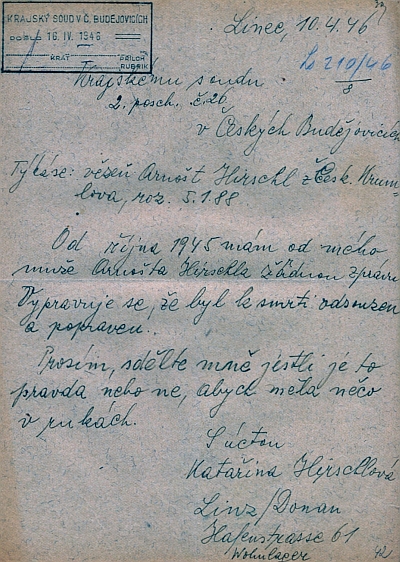 KRAJSKÝ SOUD V Č. BUDĚJOVICÍCH
DOŠLO 16. IV. 1946
KRÁT PŘÍLOH
RUBRIK
Linec, 10.4.46
210/46
8
Krajskému soudu
2. posch. č. 26
v Českých Budějovicích
Týká se: vězeň Arnošt Hirschl z Česk. Krum-
lova, roz. 5.1.88
Od října 1945 mám od mého
muže Arnošta Hirschla žádnou zprávu
Vypravuje se, že byl k smrti odsouzen
a popraven.
Prosím, sdělte mně jestli je to
pravda nebo ne, abych měla něco
v rukách.
S úctou
Katařina Hirschlová
Linz/Donau
Hafenstrasse 61
Wohnlager
42